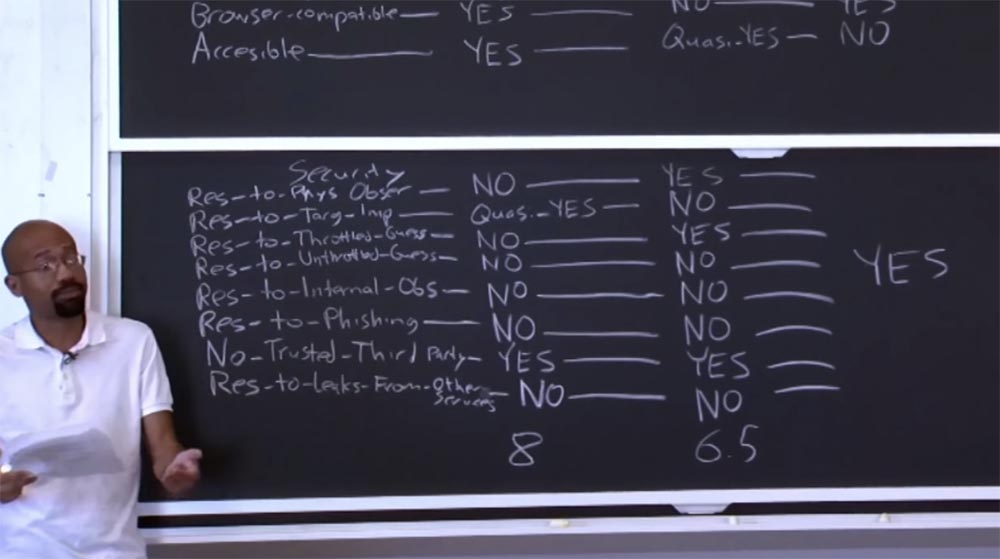 Browser-compatible— YES — NO — YES
Accesible — YES — Quasi-YES — NO
Security
Res-to-Phys Obser — NO — YES —
Res-to-Targ-Imp — Quasi-YES — NO —
Res-to-Throttled-Guess — NO — YES —
Res-to-Unthrottled-Guess — NO — NO — YES
Res-to-Internal-Obs — NO — NO —
Res-to-Phishing — NO — NO —
No-Trusted-Third Party— YES — YES —
Res-to-Leaks-From-Other Services — NO — NO —
8 6.5